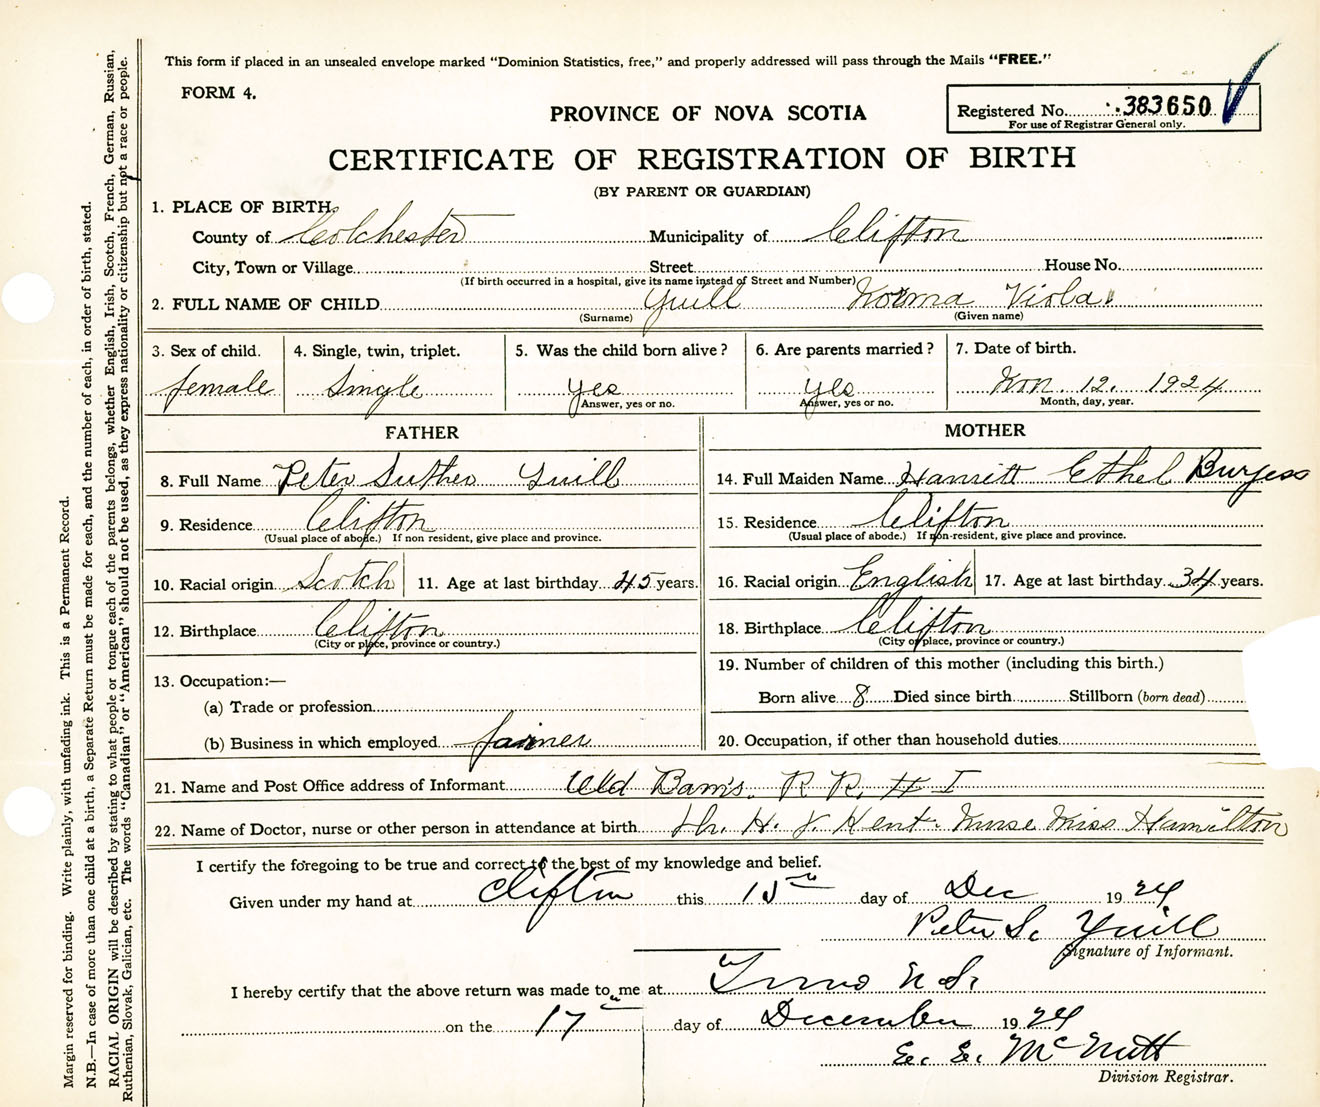 This form if placed in an unsealed envelope marked "Dominion Statistics, free," and properly addressed will pass through the Mails "FREE."
FORM 4.
PROVINCE OF NOVA SCOTIA
Registered No. 383650
For use of Registrar General only.
CERTIFICATE OF REGISTRATION OF BIRTH
(BY PARENT OR GUARDIAN)
1. PLACE OF BIRTH
County of Colchester Municipality of Clifton
City, Town or Village Street House No.
(If birth occurred in a hospital, give its name instead of Street and Number)
2. FULL NAME OF CHILD Yuill Norma Viola
(Surname) (Given name)
3. Sex of child. 4. Single, twin, triplet. 5. Was the child born alive? 6. Are parents married? 7. Date of birth.
female Single yes yes Nov. 12. 1924
Answer, yes or no. Answer, yes or no. Month, day, year.
FATHER MOTHER
8. Full Name Peter Suther Yuill 14. Full Maiden Name Harriett Ethel Burgess
9. Residence Clifton 15. Residence Clifton
(Usual place of abode.) If non resident, give place and province. (Usual place of abode.) If non-resident, give place and province.
10. Racial origin Scotch 11. Age at last birthday 45 years. 16. Racial origin English 17. Age at last birthday 34 years.
12. Birthplace Clifton 18. Birthplace Clifton
(City or place, province or country.) (City or place, province or country.)
13. Occupation:— 19. Number of children of this mother (including this birth.)
(a) Trade or profession Born alive 8 Died since birth Stillborn (born dead)
(b) Business in which employed farmer 20. Occupation, if other than household duties
21. Name and Post Office address of Informant Old Barns. R. R. # 1
22. Name of Doctor, nurse or other person in attendance at birth Dr. H. V. Kent. Nurse Miss Hamilton
I certify the foregoing to be true and correct to the best of my knowledge and belief.
Given under my hand at Clifton this 15th day of Dec 1924
Peter S. Yuill
Signature of Informant.
I hereby certify that the above return was made to me at Truro N.S.
on the 17th day of December 1924
E. E. McNutt
Division Registrar.
Margin reserved for binding. Write plainly, with unfading ink. This is a Permanent Record.
N.B.—In case of more than one child at a birth, a Separate Return must be made for each, and the number of each, in order of birth, stated.
RACIAL ORIGIN will be described by stating to what people or tongue each of the parents belongs, whether English, Irish, Scotch, French, German, Russian,
Ruthenian, Slovak, Galician, etc. The words "Canadian" or "American" should not be used, as they express nationality or citizenship but not a race or people.